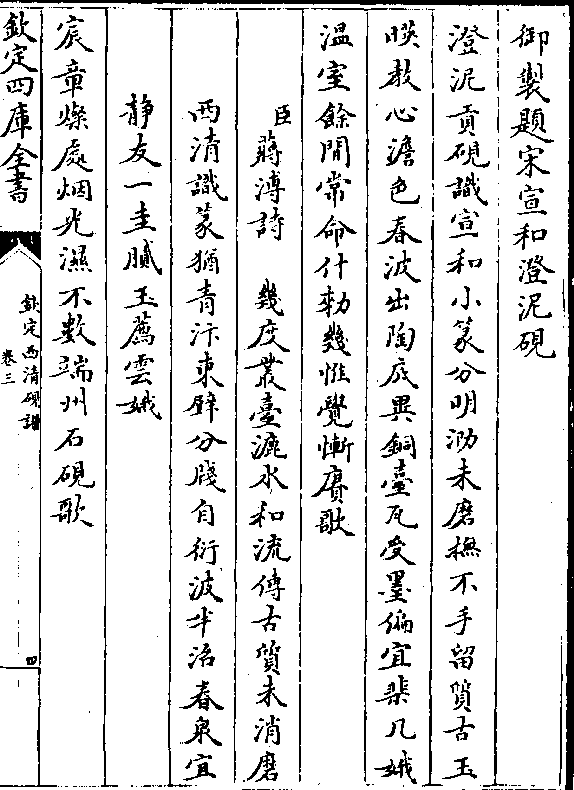 御製題宋宣和澄泥硯
澄泥貢硯識宣和小篆分明泐未磨撫不手留質古玉
映教心澹色春波出陶底異銅臺瓦受墨偏宜棐几娥
溫室餘閒常命什勅幾惟覺慚賡歌
臣蔣溥詩 幾度叢臺漉水和流傳古質未消磨
西清識篆猶青汴東壁分牋自衍波半沼春泉宜
靜友一圭膩玉薦雲娥
宸章燦處烟光濕不數端州石硯歌
欽定四庫全書
欽定西清硯譜
卷三
四